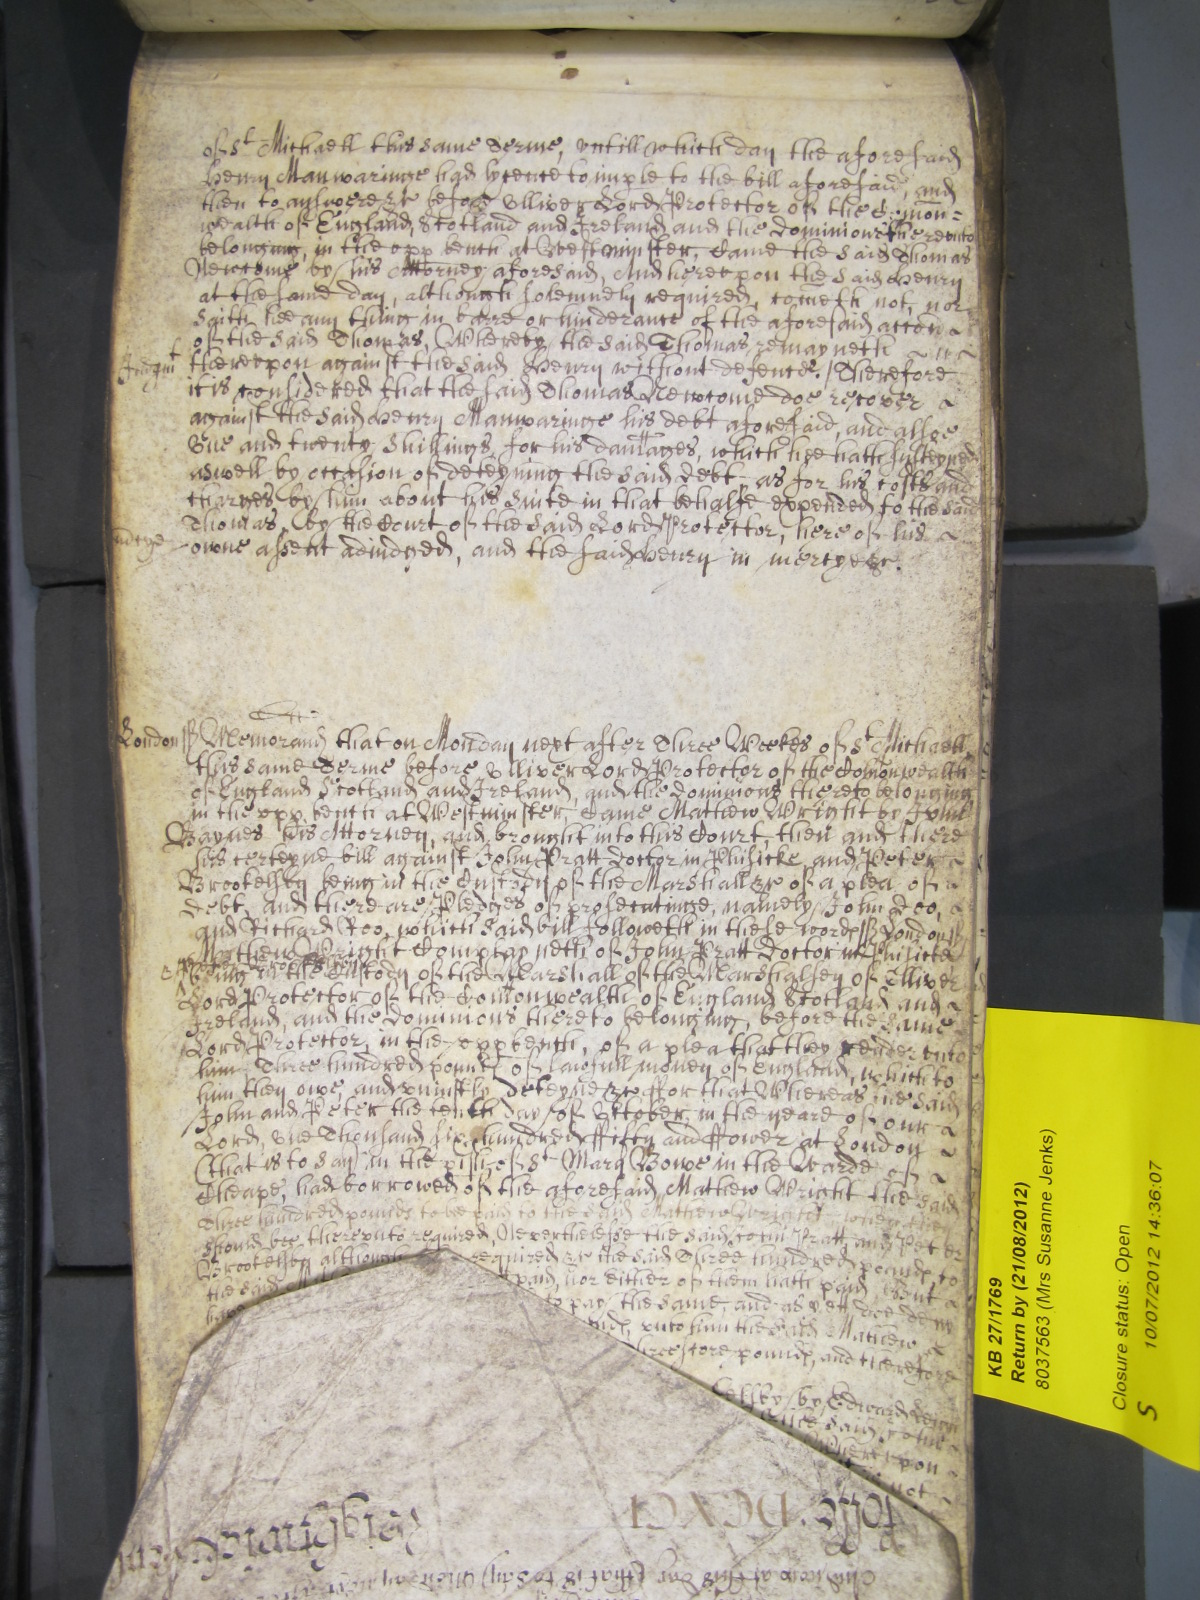 of St Michaell this same Terme, untill which day the aforesaid
Henry Manwaringe had lycence to imple to the bill aforesaid, and
then to answere &c before Olliver Lord Protector of the Comon=
wealth of England, Scotland and Ireland and the dominions thereunto
belonging, in the upp bench at Westminster, Came the said Thomas
Newcome by his Attorney aforesaid, And hereupon the said Henry
at the same day, although solemnely required, cometh not, nor
saith hee any thing in barre or hinderance of the aforesaid accon
of the said Thomas, Whereby the said Thomas remayneth
Judgmt thereupon against the said Henry without defence. Therefore
it is considered that the said Thomas Newcome doe recover
against the said Henry Manwaringe his debt aforesaid, and alsoe
One and twenty Shillings for his damages, which hee hath susteyned
aswell by occasion of deteyning the said debt, as for his costs and
charges by him about his suite in that behalfe expended to the said
Thomas by the Court of the said Lord Protector, here of his
owne assent adiudged, and the said Henry in mercy &c.
London ss Memorand that on Monday next after Three Weekes of St Michaell
this same Terme before Olliver Lord Protector of the Comonwealth
of England Scotland and Ireland, and the dominions thereto belonging
in the upp bench at Westminster, Came Mathew Wright by John
Baynes his Attorney, and brought into this Court, then and there
his certeyne bill against John Pratt Doctor in Phisicke, and Peter
Brootelsby being in the Custody of the Marshall &c of a plea of
debt, and there are Pledges of prosecutinge, namely John Doo,
and Richard Roo, which said bill followeth in these words ss London ss
Mathew Wright Complayneth of John Pratt Doctor in Phisicke
being in the Custody of the Marshall of the Marshalsey of Olliver
Lord Protector of the Comonwealth of England Scotland and
Ireland, and the dominions thereto belonging, before the same
Lord Protector, in the upp bench, of a plea that they render unto
him Three hundred pounds of lawfull money of England, which to
him they owe, and uniustly deteyne &c ffor that Whereas the said
John and Peter the tenth day of October, in the yeare of our
Lord, One Thousand six hundred ffifty and ffower at London
(that is to say) in the pish of St Mary Bowe in the Warde of
Cheape, had borrowed of the aforesaid Mathew Wright the said
Three hundred pounds to be paid to the said Mathew Wright when they
should bee thereunto required, Neverthelesse the said John Pratt and Peter
Brootelsby although required &c the said Three hundred pounds, to
the said paid, nor either of them hath paid, But
have to pay the same, and as yet doe deny
unto him the said Mathew
threescore pounds, and therefore
by Edward
the said John
hereupon
not
KB 27/1769
Return by (21/08/2012)
8037563 (Mrs Susanne Jenks)
Closure status: Open
S 10/07/2012 14:36:07